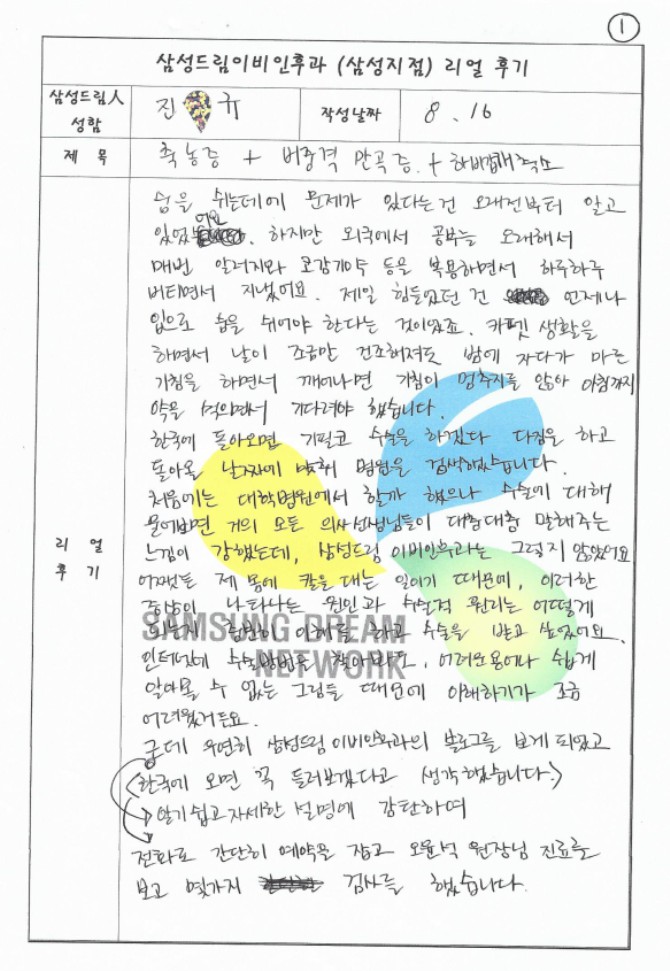 1
삼성드림이비인후과 (삼성지점) 리얼 후기
삼성드림人 성함
진 규
작성날짜
8. 16
제 목
축농증 + 비중격 만곡증 + 하비갑개 축소
리 얼 후 기
숨을 쉬는데에 문제가 있다는 건 오래전부터 알고
있었어요. 하지만 외국에서 공부를 오래해서
매번 알러지와 코감기약 등을 복용하면서 하루하루
버티면서 지냈어요. 제일 힘들었던 건 언제나
입으로 숨을 쉬어야 한다는 것이었죠. 카펫 생활을
하면서 날이 조금만 건조해져도 밤에 자다가 마른
기침을 하면서 깨어나면 기침이 멈추지를 않아 아침까지
약을 먹으면서 기다려야 했습니다.
한국에 돌아오면 기필코 수술을 하겠다 다짐을 하고
돌아올 날짜에 맞춰 병원을 검색했습니다.
처음에는 대학병원에서 할까 했으나 수술에 대해
물어보면 거의 모든 의사선생님들이 대충대충 말해주는
느낌이 강했는데, 삼성드림 이비인후과는 그렇지 않았어요
어쨌든 제 몸에 칼을 대는 일이기 때문에, 이러한
증상이 나타나는 원인과 수술적 원리는 어떻게
이해를 하고 수술을 받고 싶었어요.
SAMSUNG DREAM
NETWORK
인터넷에 수술방법을 찾아봐도, 어려운 용어나 쉽게
알아볼 수 없는 그림들 때문에 이해하기가 조금
어려웠거든요.
근데 우연히 삼성드림이비인후과의 블로그를 보게 되었고
(한국에 오면 꼭 들러보겠다고 생각했습니다.)
알기 쉽고 자세한 설명에 감탄하며
전화로 간단히 예약을 잡고 오윤석 원장님 진료를
보고 몇가지 검사를 했습니다.